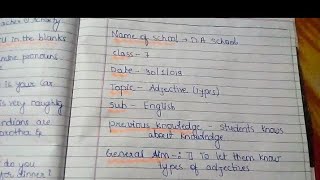 u in the blanks
pronouns
is your car
is very naughty
Indians are
do you
dinner?
Name of school → D.A School
class - 7
Date - 30/1/019
Topic - Adjective (types)
Sub - English
previous knowledge - students knows
about knowledge
General Aim - : 1) To let them know
types of adjectives